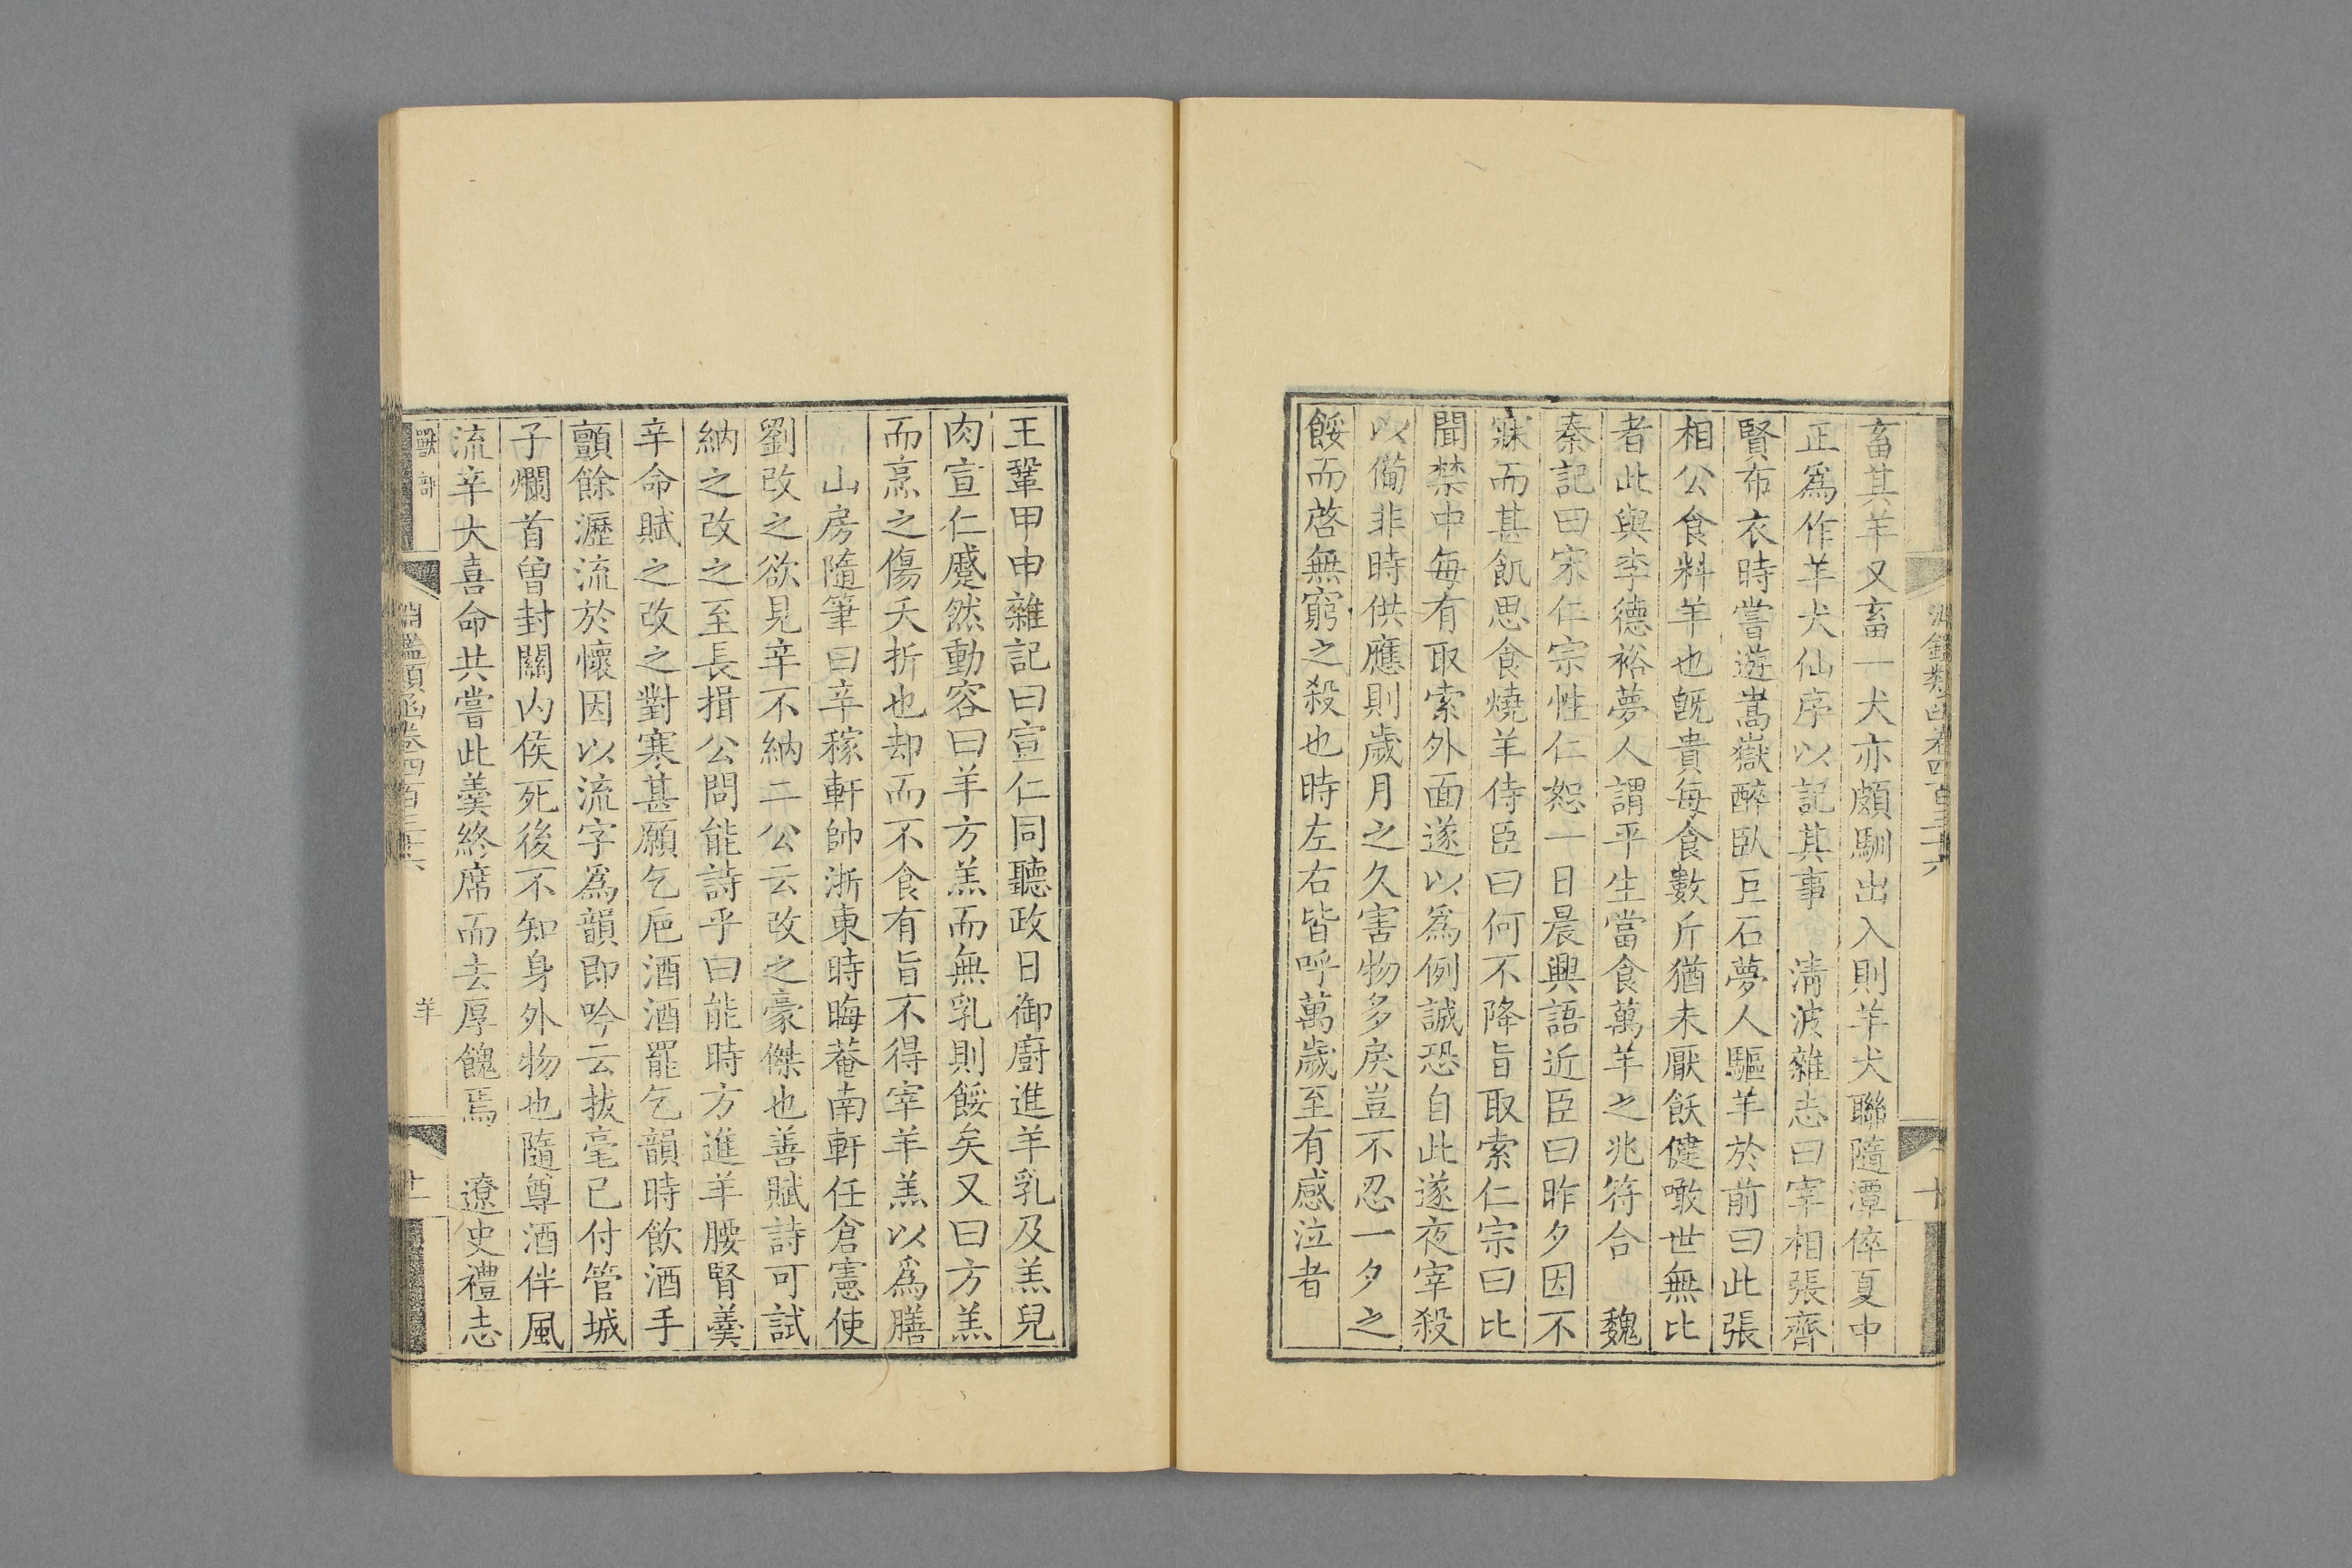 畜其羊又畜一犬亦頗馴出入則羊犬聯隨潭倅夏中
正爲作羊犬仙序以記其事　清波雜志曰宰相張齊
賢布衣時嘗遊嵩嶽醉臥巨石夢人驅羊於前曰此張
相公食料羊也既貴每食數斤猶未厭飫健噉世無比
者此與李德裕夢人謂平生當食萬羊之兆符合　魏
泰記曰宋仁宗性仁恕一日晨興語近臣曰昨夕因不
寐而甚飢思食燒羊侍臣曰何不降旨取索仁宗曰比
聞禁中每有取索外面遂以爲例誠恐自此遂夜宰殺
以備非時供應則歲月之久害物多矣豈不忍一夕之
餒而啓無窮之殺也時左右皆呼萬歲至有感泣者
王鞏甲申雜記曰宣仁同聽政日御廚進羊乳及羔兒
肉宣仁蹙然動容曰羊方羔而無乳則餒矣又曰方羔
而烹之傷夭折也却而不食有旨不得宰羊羔以爲膳
山房隨筆曰辛稼軒帥浙東時晦菴南軒任倉憲使
劉改之欲見辛不納二公云改之豪傑也善賦詩可試
納之改之至長揖公問能詩乎曰能時方進羊腰腎羹
辛命賦之改之對寒甚願乞卮酒酒罷乞韻時飲酒手
顫餘瀝流於懷因以流字爲韻即吟云拔毫已付管城
子爛首曾封關內侯死後不知身外物也隨尊酒伴風
流辛大喜命共嘗此羹終席而去厚餽焉　遼史禮志
獸部
淵鑑類函卷四百三十六
羊
十一